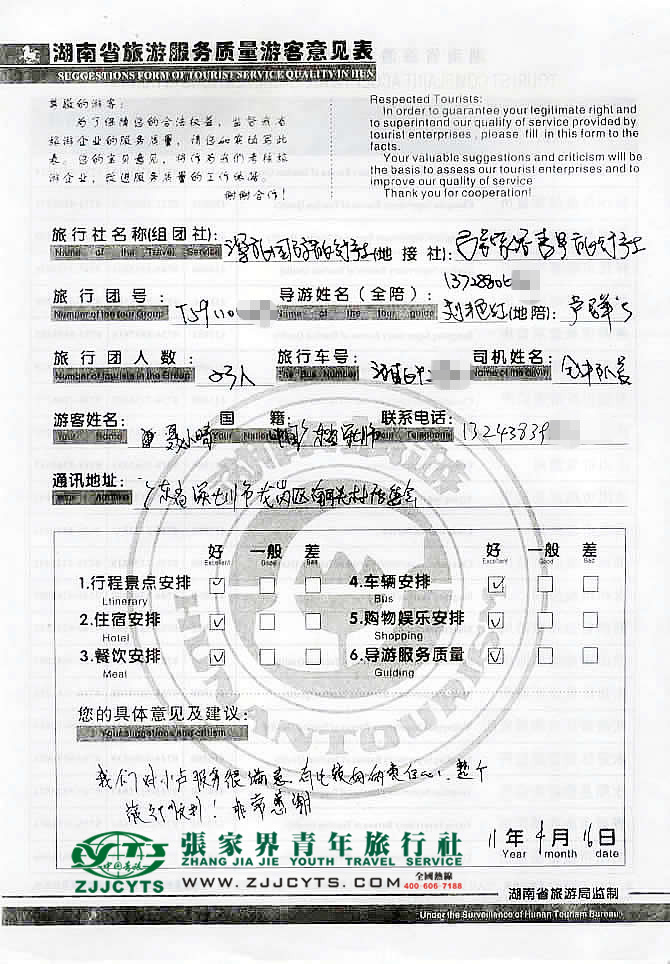 湖南省旅游服务质量游客意见表
SUGGESTIONS FORM OF TOURIST SERVICE QUALITY IN HUN
尊敬的游客:
为了保障您的合法权益，监督我省
旅游企业的服务质量，请您如实填写此
表。您的宝贵意见，将作为我们考核旅
游企业，改进服务质量的工作依据。
谢谢合作!
Respected Tourists:
In order to guarantee your legitimate right and
to superintend our quality of service provided by
tourist enterprises, please fill in this form to the
facts.
Your valuable suggestions and criticism will be
the basis to assess our tourist enterprises and to
improve our quality of service
Thank you for cooperation!
旅行社名称(组团社):
(地接社):
Name of the Travel Service
13728806
旅行团号:
导游姓名(全陪):
(地陪):
Numumer of the tour Group
Name of the tour guide
旅行团人数:
23人
旅行车号:
司机姓名:
Number of tourists in the Group
The Bus Number
Name of the driver
游客姓名:
国籍:
中国
联系电话:
13243839
Your Name
Your Nation
Your Telephone
通讯地址:
广东省深圳市龙岗区
好 一般 差 好 一般 差
Excellent Good Bad Excellent Good Bad
1.行程景点安排 4.车辆安排
Ltinerary Bus
2.住宿安排 5.购物娱乐安排
Hotel Shopping
3.餐饮安排 6.导游服务质量
Meal Guiding
HUNAN TOURISM
您的具体意见及建议:
Your suggestions and critism
我们对小卢服务很满意.有比较好的责任心、整个
旅行顺利! 非常感谢
11年4月16日
Year month date
中国青旅
ZJJCYTS
張家界青年旅行社
ZHANG JIA JIE YOUTH TRAVEL SERVICE
WWW.ZJJCYTS.COM
全國熱線
400 606 7188
湖南省旅游局监制
Under the Surveillance of Hunan Tourism Bureau